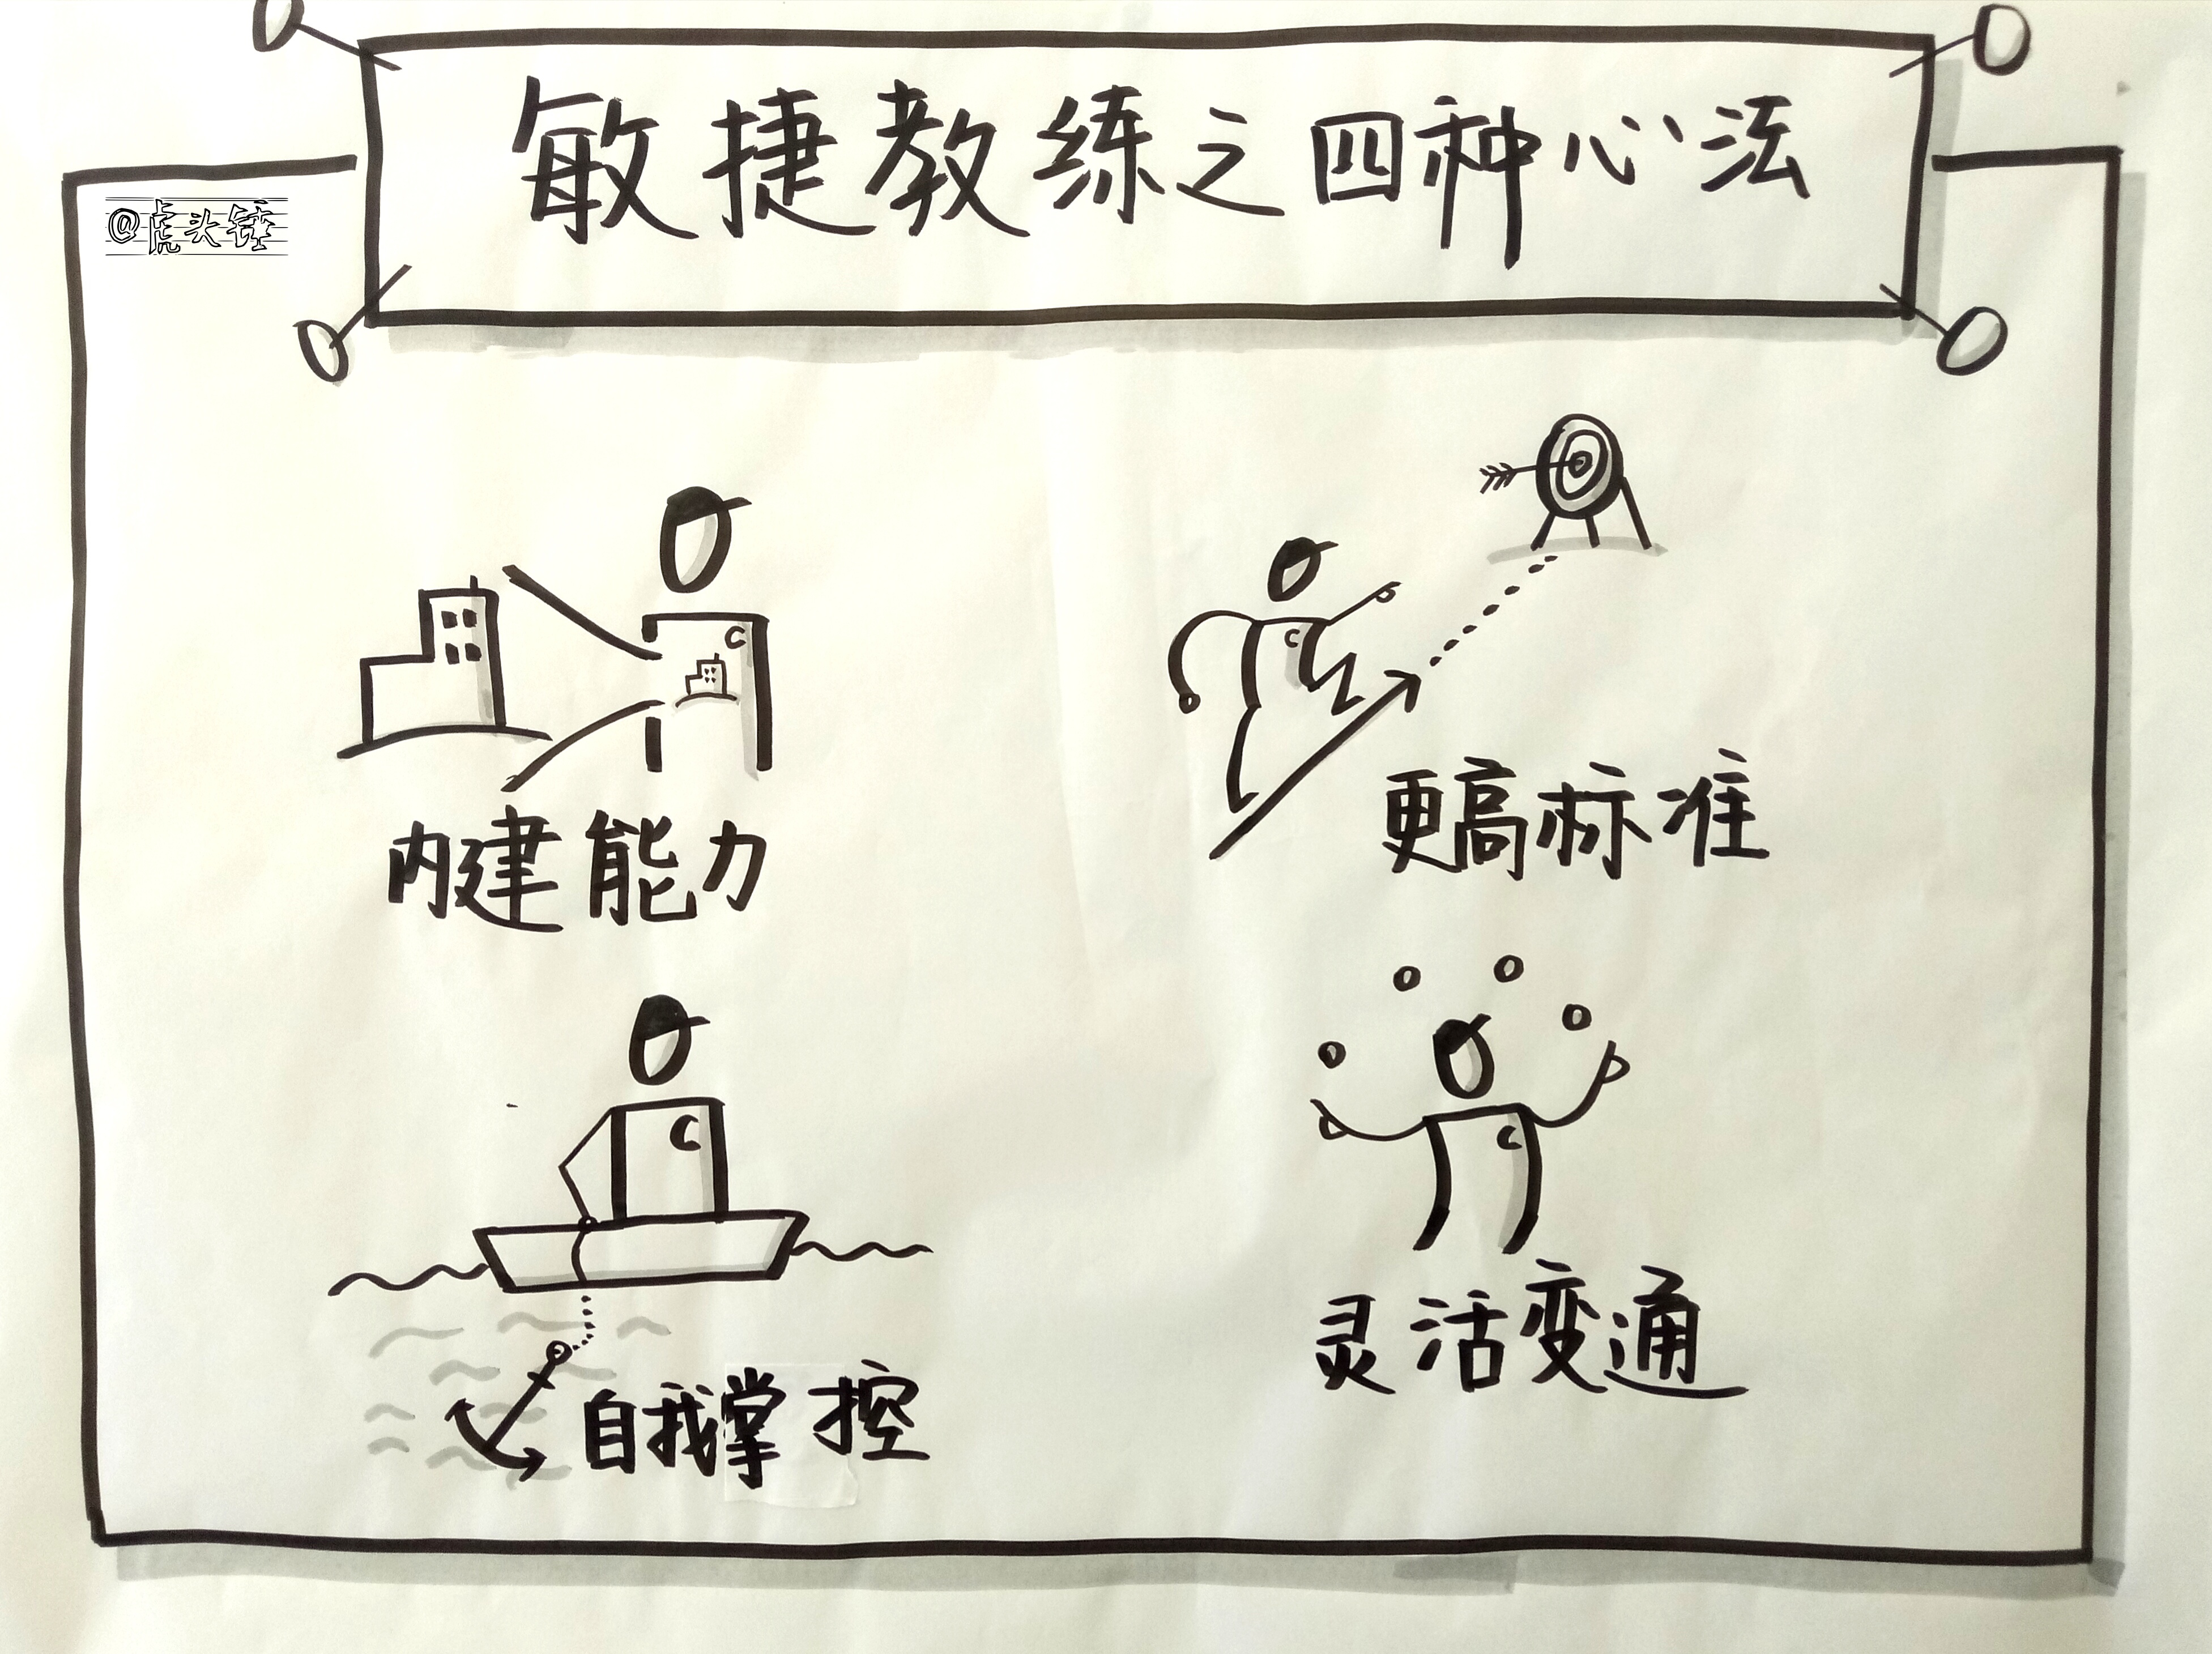 敏捷教练之四种心法
@虎头锤
C
内建能力
C
更高标准
C
自我掌控
C
灵活变通